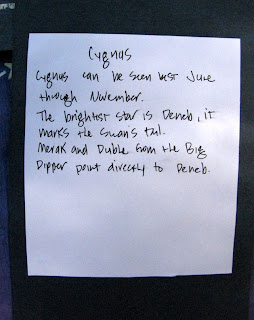 Cygnus
Cygnus can be seen best June
through November.
The brightest star is Deneb, it
marks the swan's tail.
Merak and Duble from the Big
Dipper point directly to Deneb.